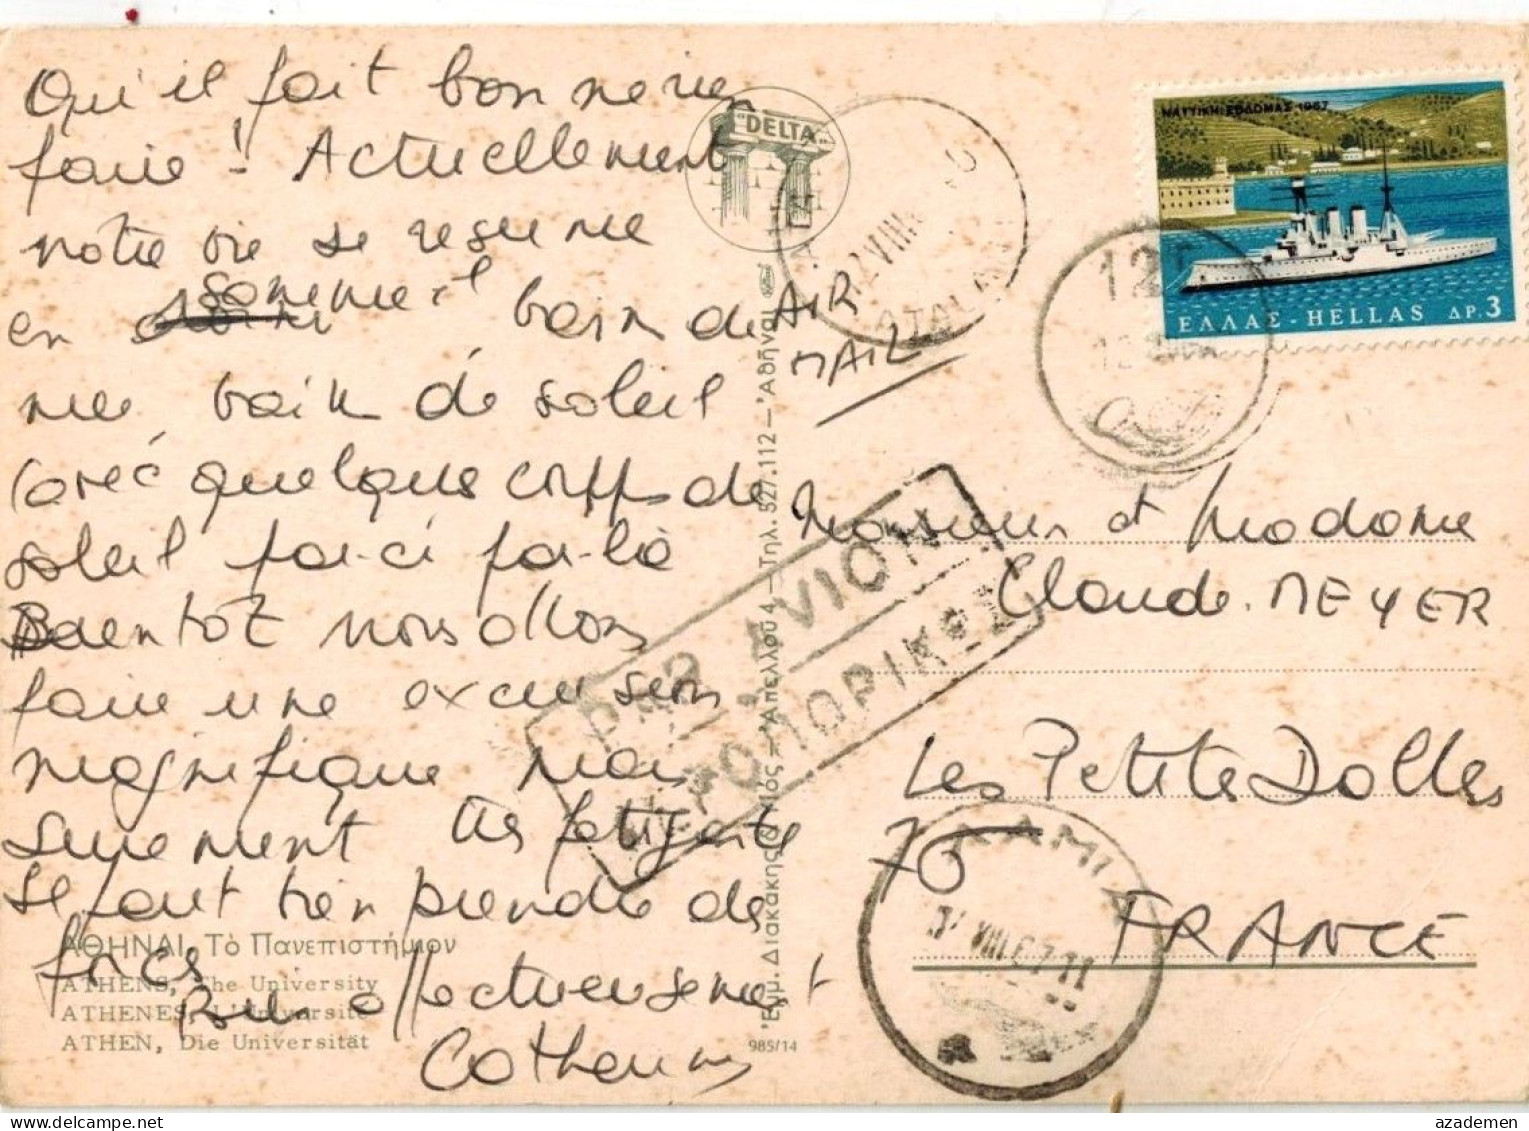 Qu'il fait bon ne rien
faire ! Actuellement
notre vie se resume
en sommeil bain de
mer bain de soleil
(avec quelques coups de
soleil par-ci par-là
Bientôt nous allons
faire une excursion
magnifique mais
surement très fatigante
Il faut bien prendre des
forces
affectueusement
Catherine
"DELTA"
AIR
MAIL
ΝΑΥΤΙΚΗ ΕΒΔΟΜΑΣ 1967
ΕΛΛΑΣ - HELLAS ΔΡ. 3
125
PAR AVION
ΑΕΡΟΠΟΡΙΚΩΣ
Monsieur et Madame
Claude. MEYER
Les Petites Dalles
76
FRANCE
ΛΑΜΙΑ
VIII 67 11
ΑΘΗΝΑΙ, Τὸ Πανεπιστήμιον
ATHENS, The University
ATHENES, L'Université
ATHEN, Die Universität
985/14
Ἐκμ. Διακάκης & Υἱός - Ἀπελλοῦ 4 - Τηλ. 527.112 - Ἀθῆναι
azademen